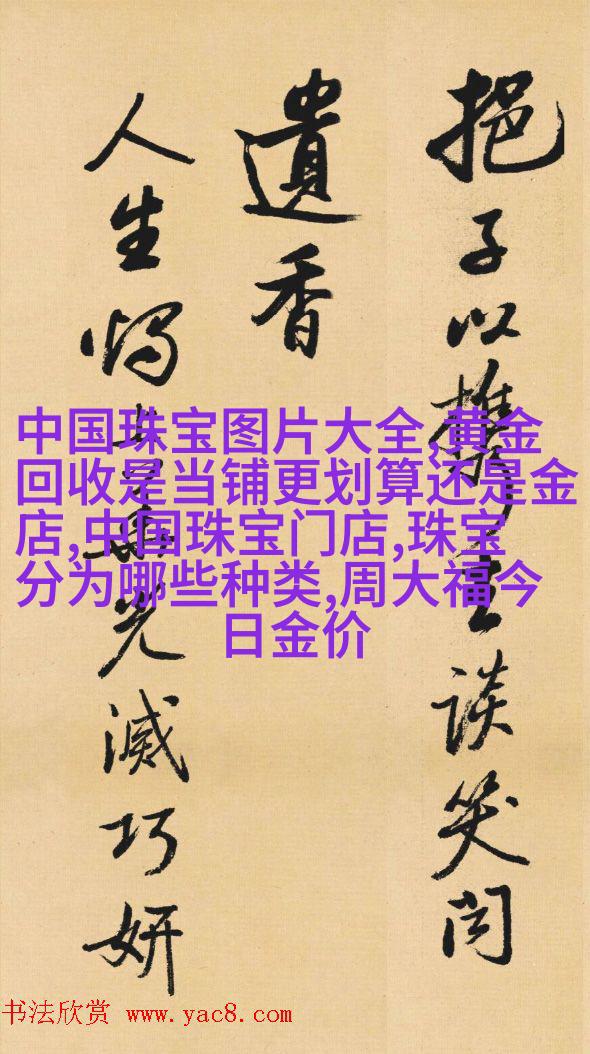 挹子以談笑
遺香
人生燭上華光滅巧妍
中国珠宝图片大全,黄金
回收是当铺更划算还是金
店,中国珠宝门店,珠宝
分为哪些种类,周大福今
日金价
书法欣赏 www.yac8.com